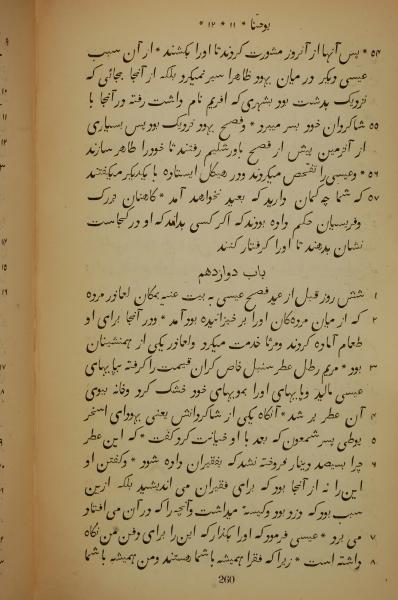 یوحنّا * ۱۱ * ۱۲ *
۵۴ * پس آنها از آنروز مشورت کردند تا اورا بکشند * از آن سبب
عیسی دیگر در میان یهود ظاهرا سیر نمیکرد بلکه از آنجا بجائی که
نزدیک بدشت بود بشهری که افریم نام داشت رفته در آنجا با
۵۵ شاکردان خود بسر میبرد * و فصح یهود نزدیک بود پس بسیاری
از آنزمین پیش از فصح باورشلیم رفتند تا خودرا طاهر سازند
۵۶ * و عیسی را تفحص میکردند و در هیکل ایستاده با یکدیکر میکفتند
۵۷ که شما چه کمان دارید که بعید نخواهد آمد * کاهنان بزرک
و فریسیان حکم داده بودند که اکر کسی بداند که او در کجاست
نشان بدهند تا اورا کرفتار کنند
باب دوازدهم
۱ شش روز قبل از عید فصح عیسی به بیت عنیه بمکان لعاذر مرده
۲ که از میان مردهکان اورا بر خیزانیده بود آمد * و در آنجا برای او
طعام آماده کردند و مرثا خدمت میکرد و لعاذر یکی از همنشینان
۳ بود * مریم رطل عطر سنبل خاص کران قیمت را کرفته بپایهای
عیسی مالید و پایهای اورا بمویهای خود خشک کرد و خانه ببوی
۴ آن عطر پر شد * آنکاه یکی از شاکردانش یعنی یهودای اسخر
۵ یوطی پسر شمعون که بعد با او خیانت کرد کفت * که این عطر
۶ چرا بسیصد دینار فروخته نشد که بفقیران داده شود * و کفتن او
این را نه از آنجا بود که برای فقیران می اندیشید بلکه ازین
سبب بود که دزد بود و کیسه میداشت و آنچه را که در آن می افتاد
۷ می برد * عیسی فرمود که اورا بکذار که این را برای دفن من نکاه
۸ داشته است * زیرا که فقرا همیشه با شما هستند و من همیشه با شما
260